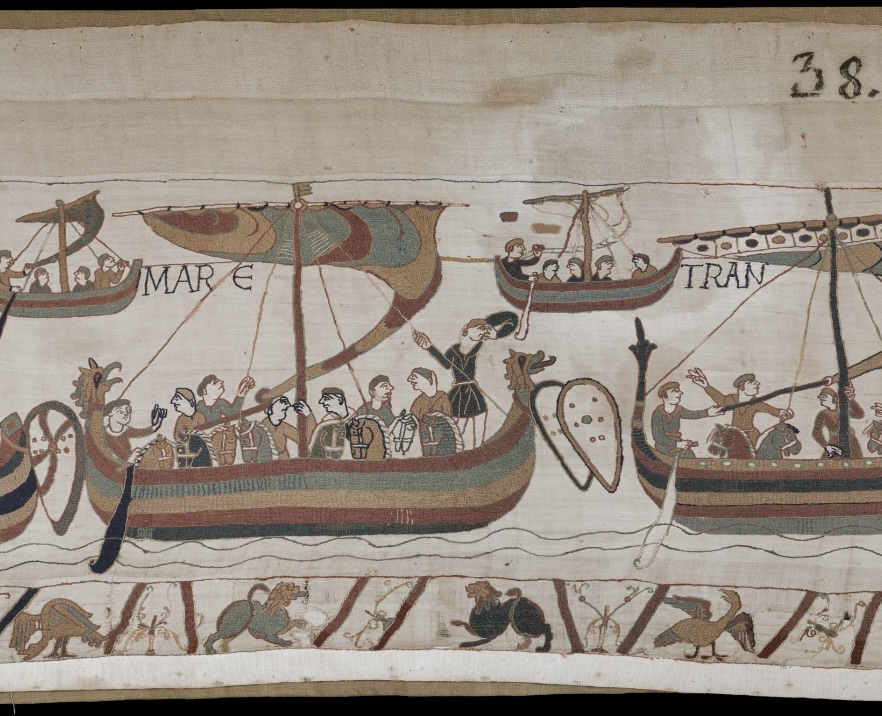 38.
MARE TRAN